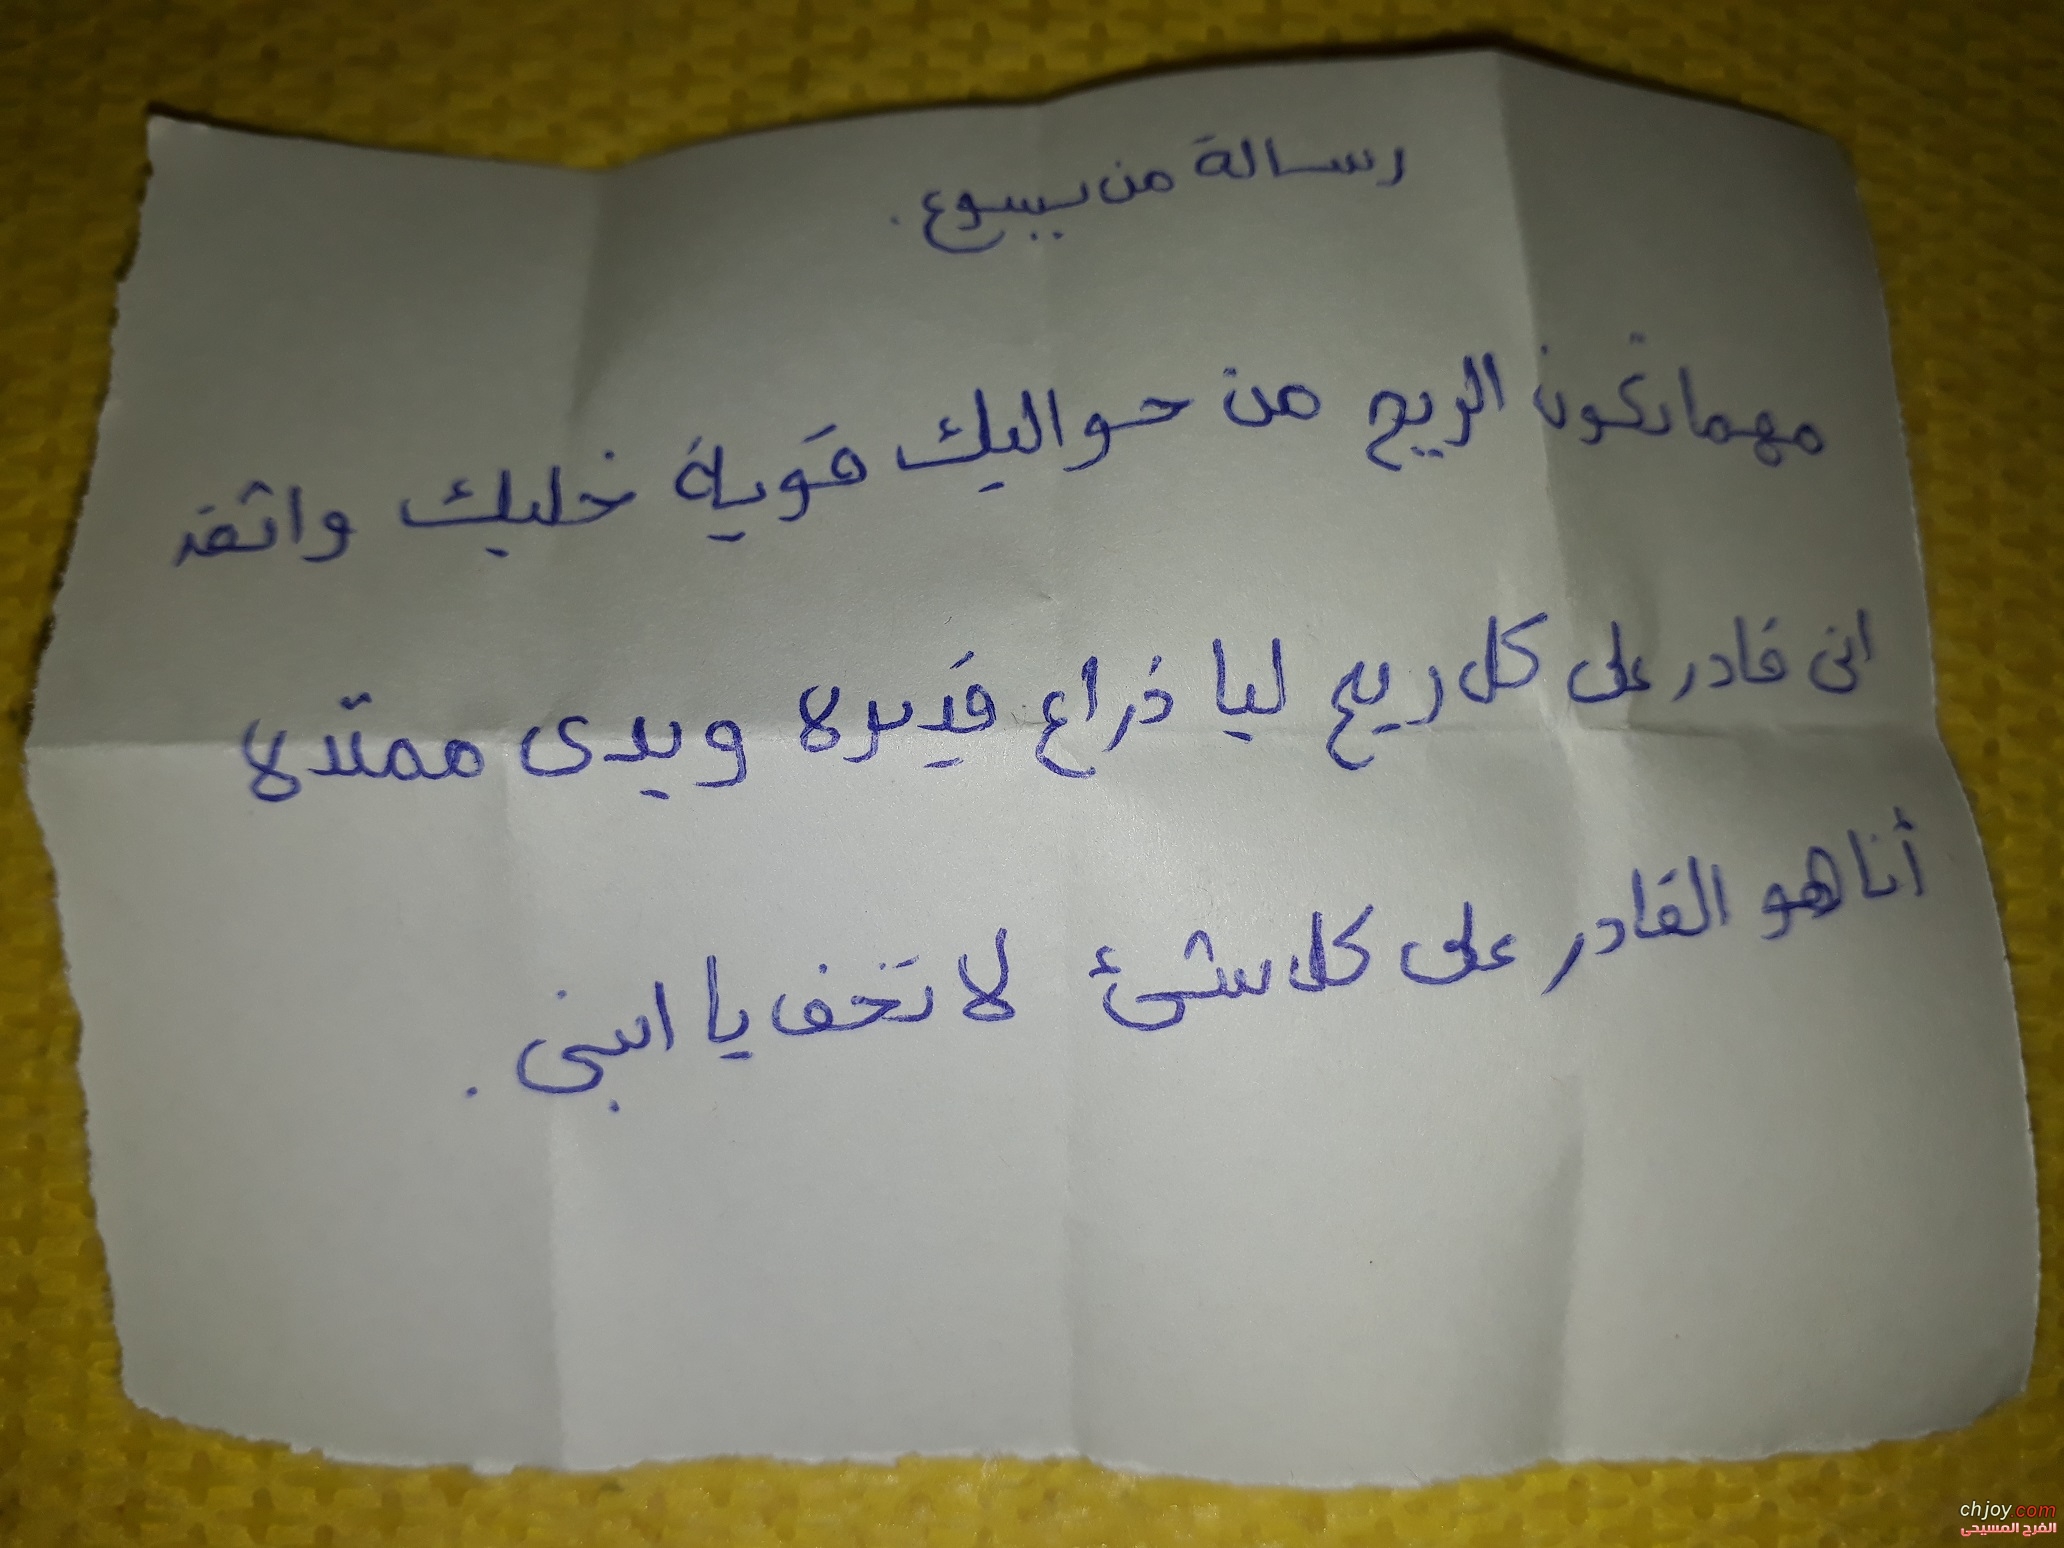 رسالة من يسوع.
مهما تكون الريح من حواليك قوية خليك واثق
انى قادر على كل ريح ليا ذراع قديره ويدى ممتده
أنا هو القادر على كل شئ لا تخف يا ابنى.
chjoy.com
الفرح المسيحى